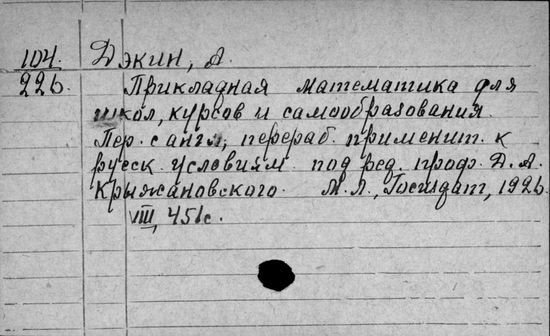 104.
226.
Джин, А.
Прикладная математика для
школ, курсов и самообразования.
Пер. с англ., перераб. применит. к
русск. условиям под ред. проф. Д. А.
Крыжановского. М.Л., Госиздат, 1926.
VIII, 451с.